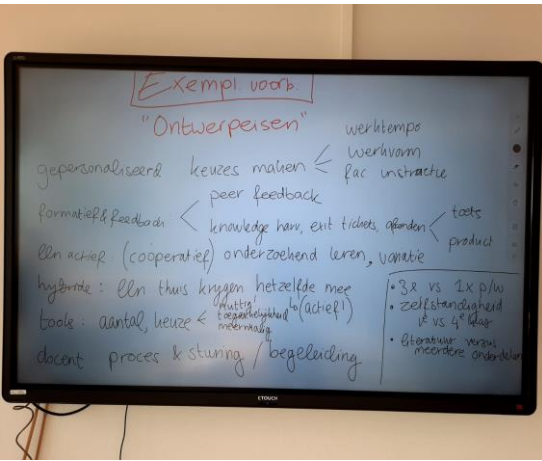 Exempl. voorb.
"Ontwerpeisen"
gepersonaliseerd keuzes maken < werktempo
werkvorm
fac instructie
formatief & feedback < peer feedback
knowledge harv, exit tickets, afronden < toets
product
lln actief: (coöperatief) onderzoekend leren, variatie
hybride: lln thuis krijgen hetzelfde mee
↳ (actief!)
tools: aantal, keuze < nuttig
toegankelijkheid
meermalig
docent proces & sturing / begeleiding
• 3x vs 1x p/w
• zelfstandigheid
1e vs 4e klas
• literatuur versus
meerdere onderdelen
CTOUCH